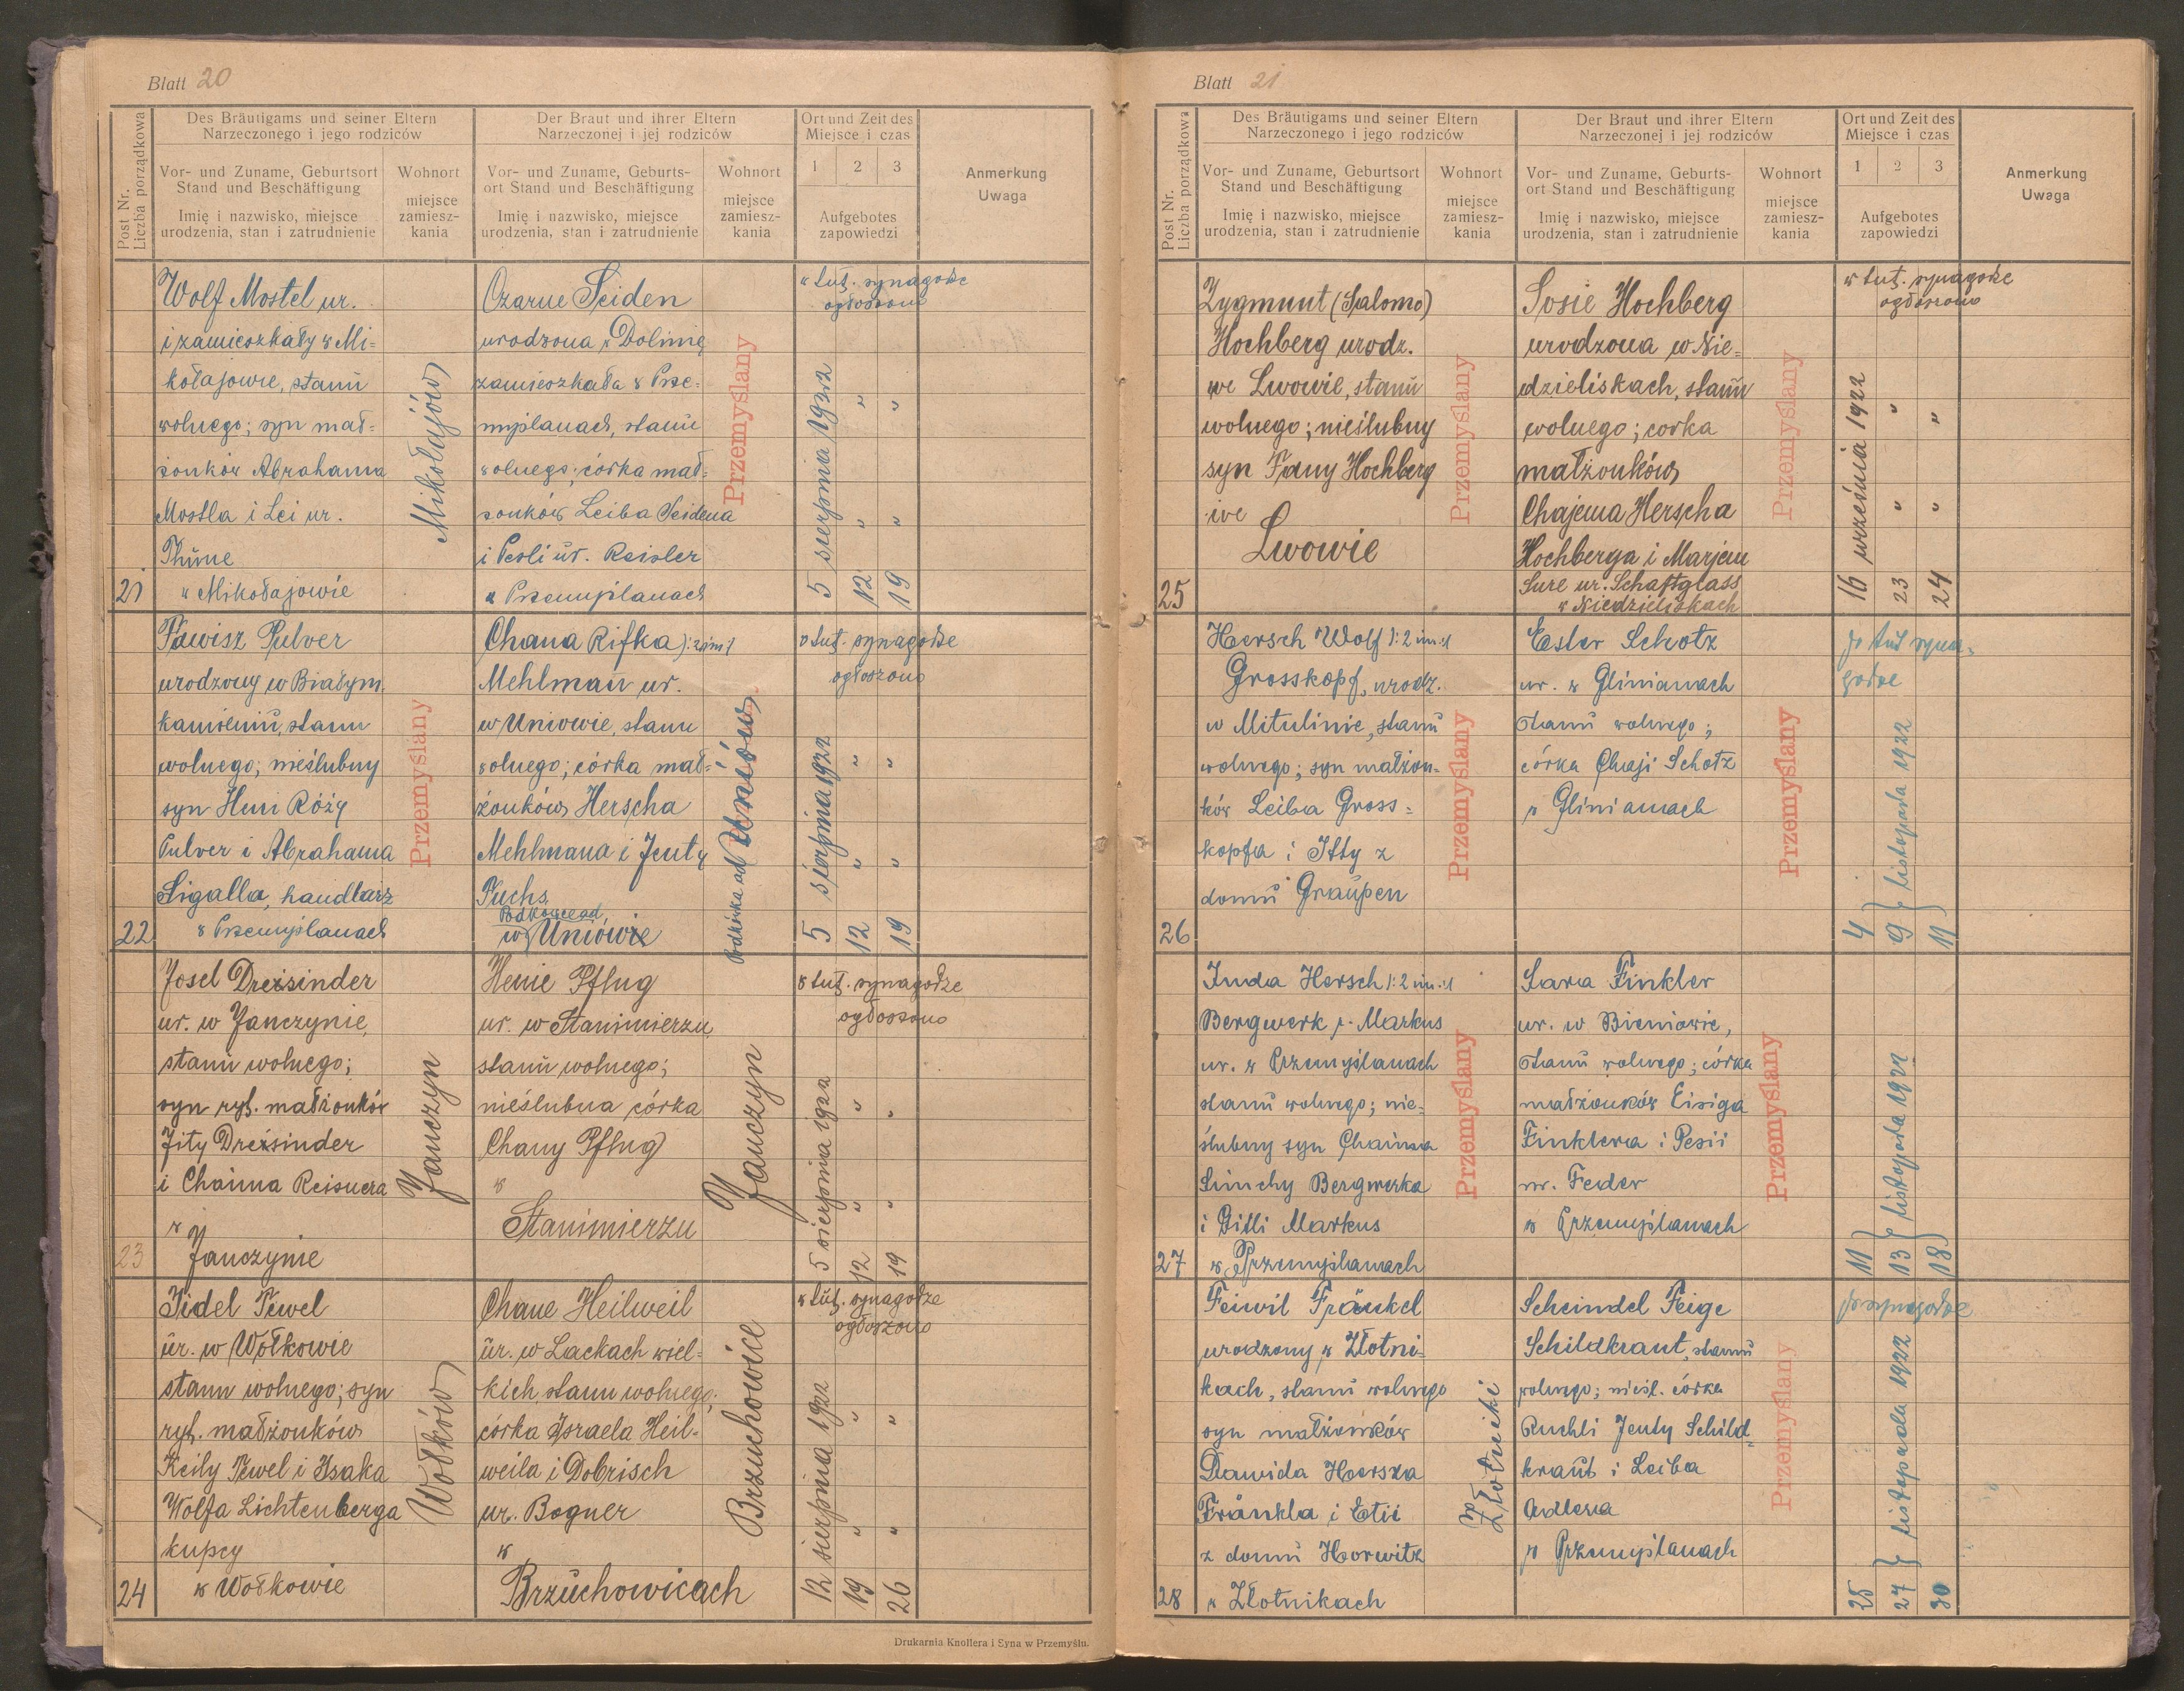 Blatt 20
Post Nr.
Liczba porządkowa
Des Bräutigams und seiner Eltern
Narzeczonego i jego rodziców
Der Braut und ihrer Eltern
Narzeczonej i jej rodziców
Ort und Zeit des
Miejsce i czas
Vor- und Zuname, Geburtsort
Stand und Beschäftigung
Imię i nazwisko, miejsce
urodzenia, stan i zatrudnienie
Wohnort
miejsce
zamiesz-
kania
Vor- und Zuname, Geburts-
ort Stand und Beschäftigung
Imię i nazwisko, miejsce
urodzenia, stan i zatrudnienie
Wohnort
miejsce
zamiesz-
kania
1 2 3
Aufgebotes
zapowiedzi
Anmerkung
Uwaga
21
Wolf Mostel ur.
i zamieszkały w Mi=
kołajowie, stanu
wolnego; syn mał=
żonków Abrahama
Mostla i Lei ur.
Thüne
w Mikołajowie
Mikołajów
Czarne Seiden
urodzona w Dolinie
zamieszkała w Prze=
myślanach, stanu
wolnego; córka mał=
żonków Leiba Seidena
i Pesli ur. Reisler
w Przemyślanach
Przemyślany
w tut. synagodze
ogłoszono
5 sierpnia 1922
12 " "
19 " "
22
Fawisz Pulver
urodzony w Białym
kamieniu, stanu
wolnego; nieślubny
syn Heni Róży
Pulver i Abrahama
Sigalla, handlarz
w Przemyślanach
Przemyślany
Chana Rifka /:2 im:/
Mehlman ur.
w Uniowie, stanu
wolnego; córka mał=
żonków Herscha
Mehlmana i Jenty
Fuchs
Podkowce ad
w Uniowie
Podkówka ad Uniów
w tut. synagodze
ogłoszono
5 sierpnia 1922
12 " "
19 " "
23
Josel Dreisinder
ur. w Janczynie,
stanu wolnego;
syn ryt. małżonków
Jity Dreisinder
i Chaima Reisnera
w
Janczynie
Janczyn
Henie Pflug
ur. w Stanimierzu
stanu wolnego;
nieślubna córka
Chany Pflug
w
Stanimierzu
Janczyn
w tut. synagodze
ogłoszono
5 sierpnia 1922
12 " "
19 " "
24
Jidel Tewel
ur. w Wołkowie
stanu wolnego; syn
ryt. małżonków
Keily Tewel i Isaka
Wolfa Lichtenberga
kupcy
w Wołkowie
Wołków
Chane Heilweil
ur. w Lackach wiel=
kich, stanu wolnego;
córka Izraela Heil=
weila i Dobrisch
ur. Bogner
w
Brzuchowicach
Brzuchowice
w tut. synagodze
ogłoszono
12 sierpnia 1922
19 " "
26 " "
Drukarnia Knollera i Syna w Przemyślu.
Blatt 21
Post Nr.
Liczba porządkowa
Des Bräutigams und seiner Eltern
Narzeczonego i jego rodziców
Der Braut und ihrer Eltern
Narzeczonej i jej rodziców
Ort und Zeit des
Miejsce i czas
Vor- und Zuname, Geburtsort
Stand und Beschäftigung
Imię i nazwisko, miejsce
urodzenia, stan i zatrudnienie
Wohnort
miejsce
zamiesz-
kania
Vor- und Zuname, Geburts-
ort Stand und Beschäftigung
Imię i nazwisko, miejsce
urodzenia, stan i zatrudnienie
Wohnort
miejsce
zamiesz-
kania
1 2 3
Aufgebotes
zapowiedzi
Anmerkung
Uwaga
25
Zygmunt (Salomo)
Hochberg urodz.
we Lwowie, stanu
wolnego; nieślubny
syn Fany Hochberg
we
Lwowie
Przemyślany
Sosie Hochberg
urodzona w Nie=
dzieliskach, stanu
wolnego; corka
małżonków
Chajema Herscha
Hochberga i Marjem
Sure ur. Schaftglass
w Niedzieliskach
Przemyślany
w tut. synagodze
ogłoszono
16 września 1922
23 " "
24 " "
26
Hersch Wolf /:2 im:/
Grosskopf, urodz.
w Mitulinie, stanu
wolnego; syn małżon-
ków Leiba Gross=
kopfa i Itty z
domu Graupen
Przemyślany
Ester Schotz
ur. w Glinianach
stanu wolnego;
córka Chaji Schotz
w Glinianach
Przemyślany
w tut syna-
godze
4
9 } listopada 1922
11
27
Juda Hersch /:2 im:/
Bergwerk r. Markus
ur. w Przemyślanach
stanu wolnego; nie-
ślubny syn Chaima
Simchy Bergwerka
i Gitli Markus
w Przemyślanach
Przemyślany
Sara Finkler
ur. w Bieniowie,
stanu wolnego; córka
małżonków Eisiga
Finklera i Pesii
ur. Feder
w Przemyślanach
Przemyślany
11
13 } listopada 1922
18
28
Feiwil Fränkel
urodzony w Złotni-
kach, stanu wolnego
syn małżonków
Dawida Hersza
Fränkla i Etii
z domu Horwitz
w Złotnikach
w Złotniki
Scheindel Feige
Schildkraut, stanu
wolnego; nieśl. córka
Ruchli Jenty Schild-
kraut i Leiba
Adlera
w Przemyślanach
Przemyślany
w synagodze
25
27 } listopada 1922
30